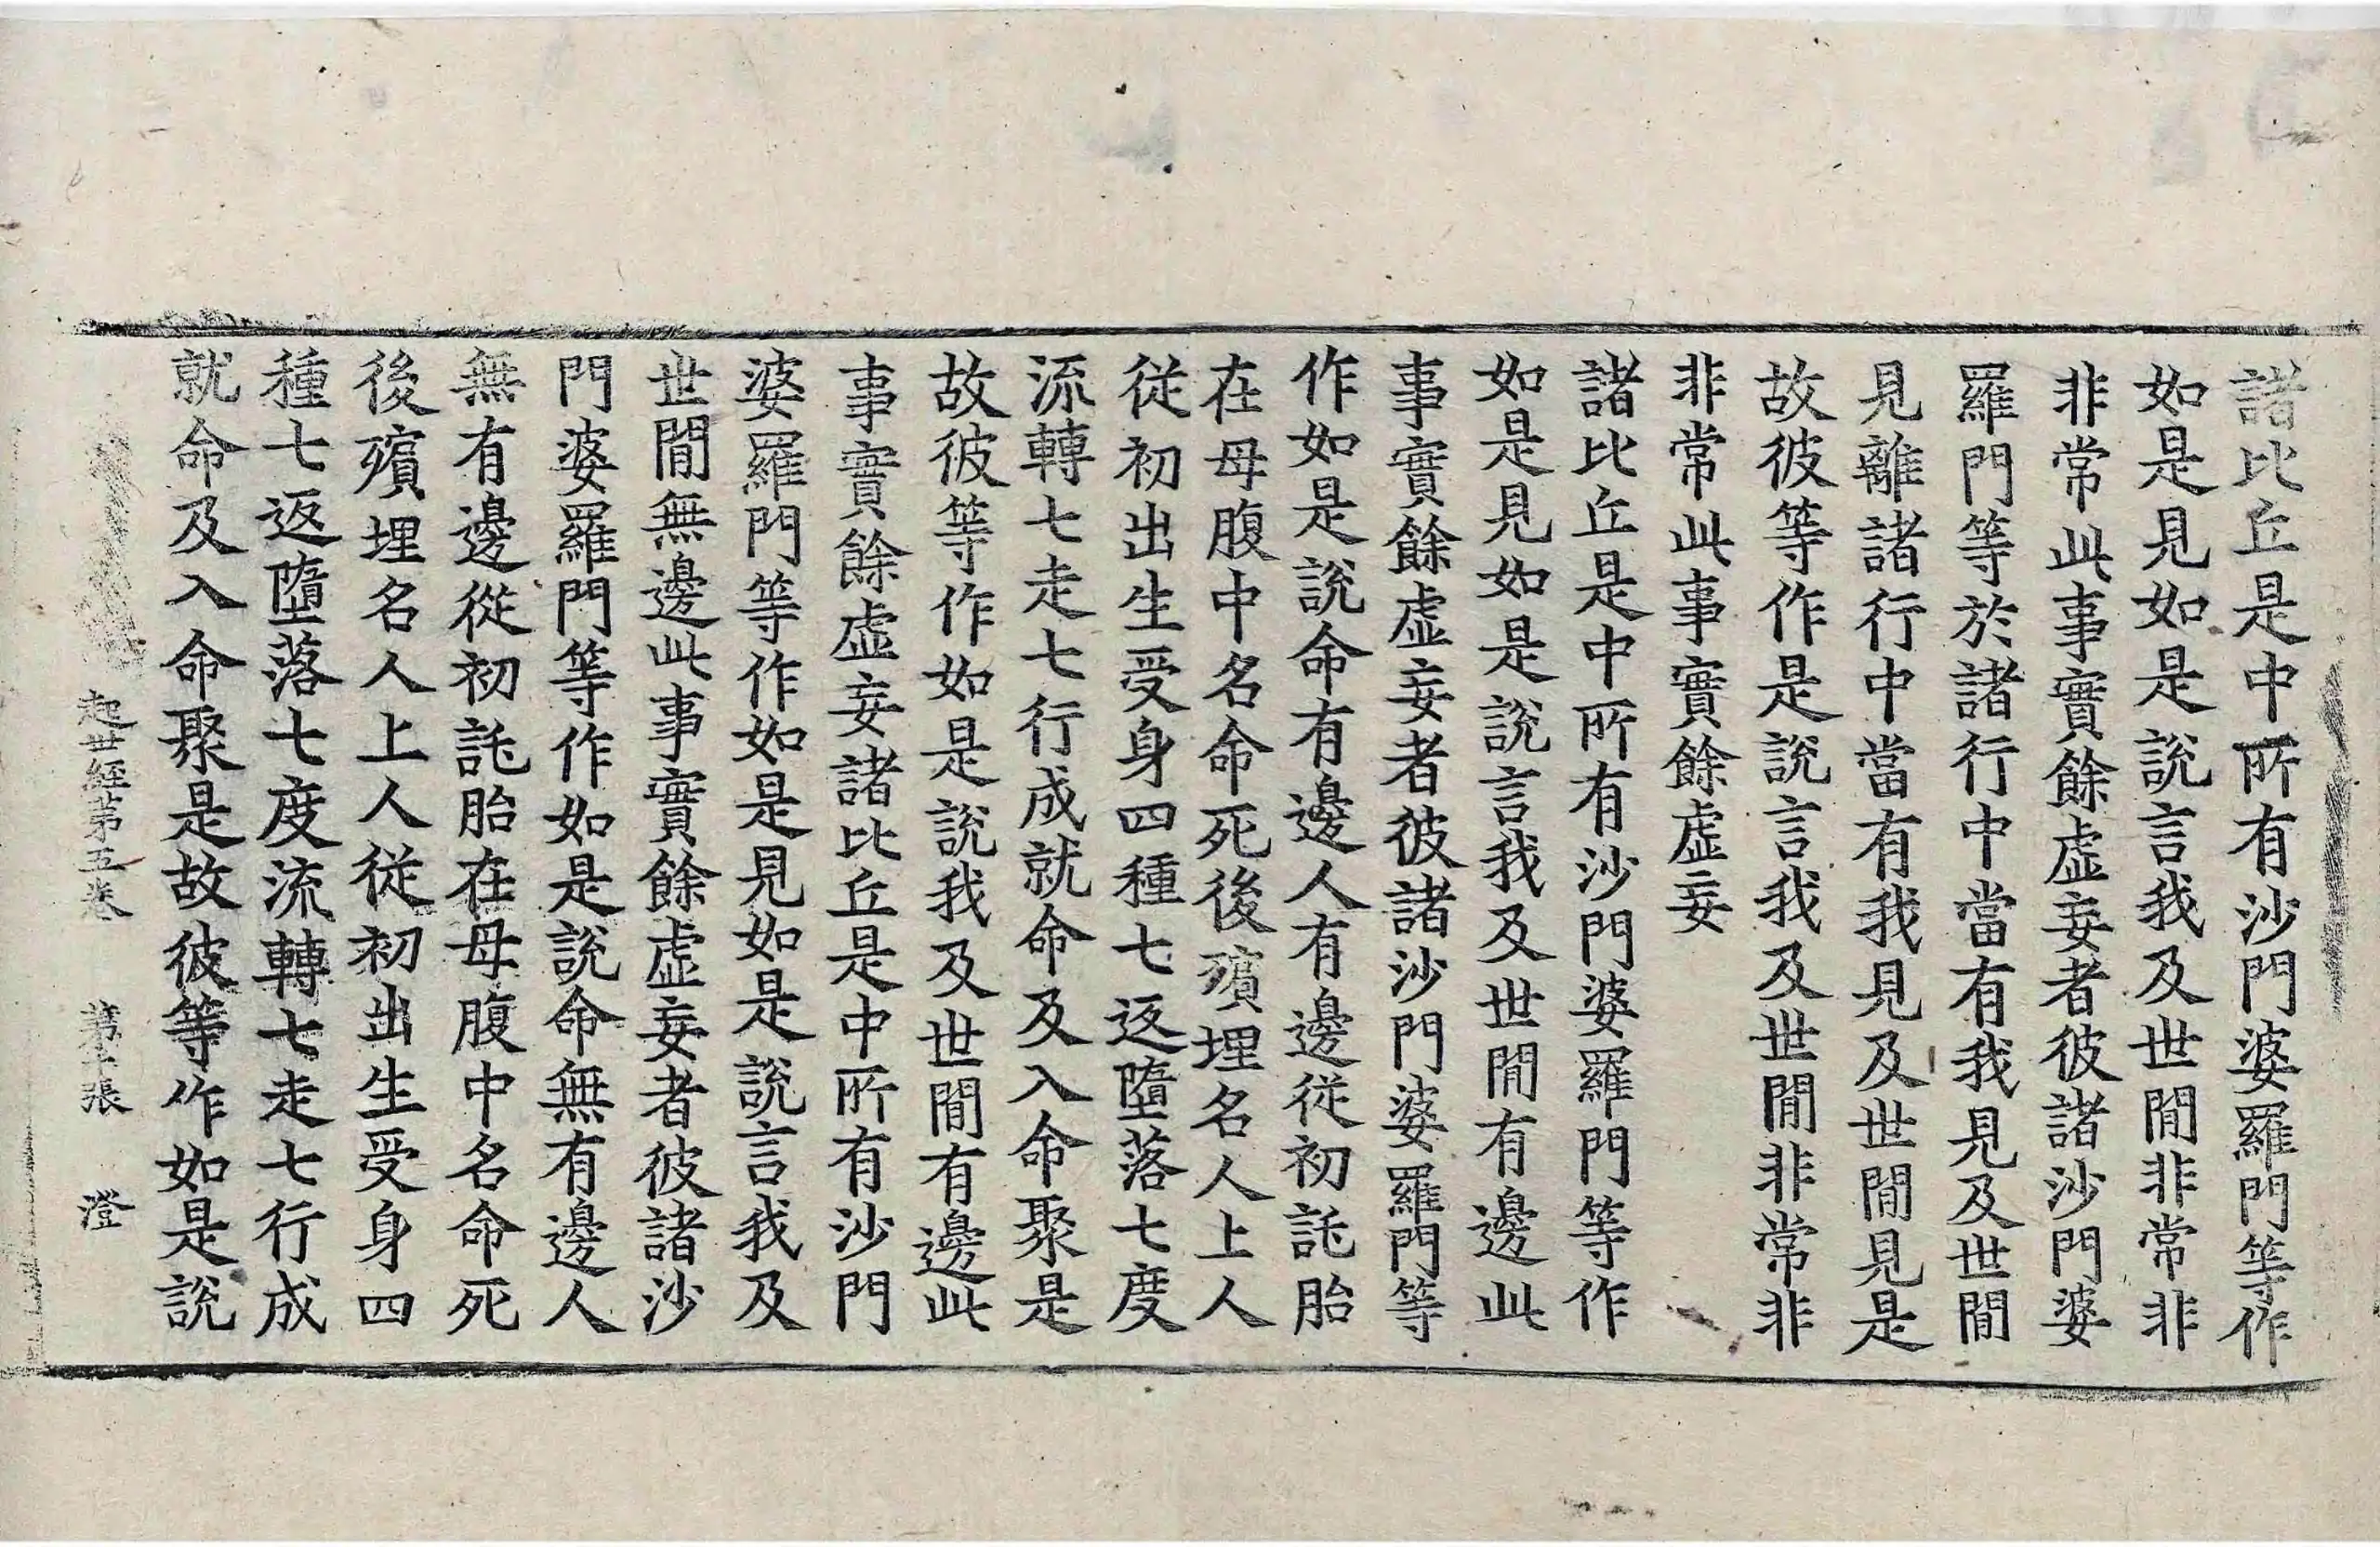 諸比丘是中所有沙門婆羅門等作
如是見如是說言我及世閒非常非
非常此事實餘虛妄者彼諸沙門婆
羅門等於諸行中當有我見及世閒
見離諸行中當有我見及世閒見是
故彼等作是說言我及世閒非常非
非常此事實餘虛妄
諸比丘是中所有沙門婆羅門等作
如是見如是說言我及世閒有邊此
事實餘虛妄者彼諸沙門婆羅門等
作如是說命有邊人有邊從初託胎
在母腹中名命死後殯埋名人上人
從初出生受身四種七返墮落七度
流轉七走七行成就命及入命聚是
故彼等作如是說我及世閒有邊此
事實餘虛妄諸比丘是中所有沙門
婆羅門等作如是見如是說言我及
世閒無邊此事實餘虛妄者彼諸沙
門婆羅門等作如是說命無有邊人
無有邊從初託胎在母腹中名命死
後殯埋名人上人從初出生受身四
種七返墮落七度流轉七走七行成
就命及入命聚是故彼等作如是說
起世經第五卷 第 張 澄